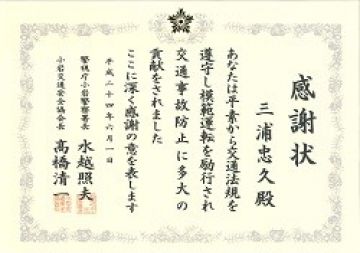 感謝状
三浦忠久殿
あなたは平素から交通法規を
遵守し模範運転を励行され
交通事故防止に多大の
貢献をされました
ここに深く感謝の意を表します
平成二十四年六月一日
警視庁小岩警察署長
水越照夫
小岩交通安全協会長
高橋清